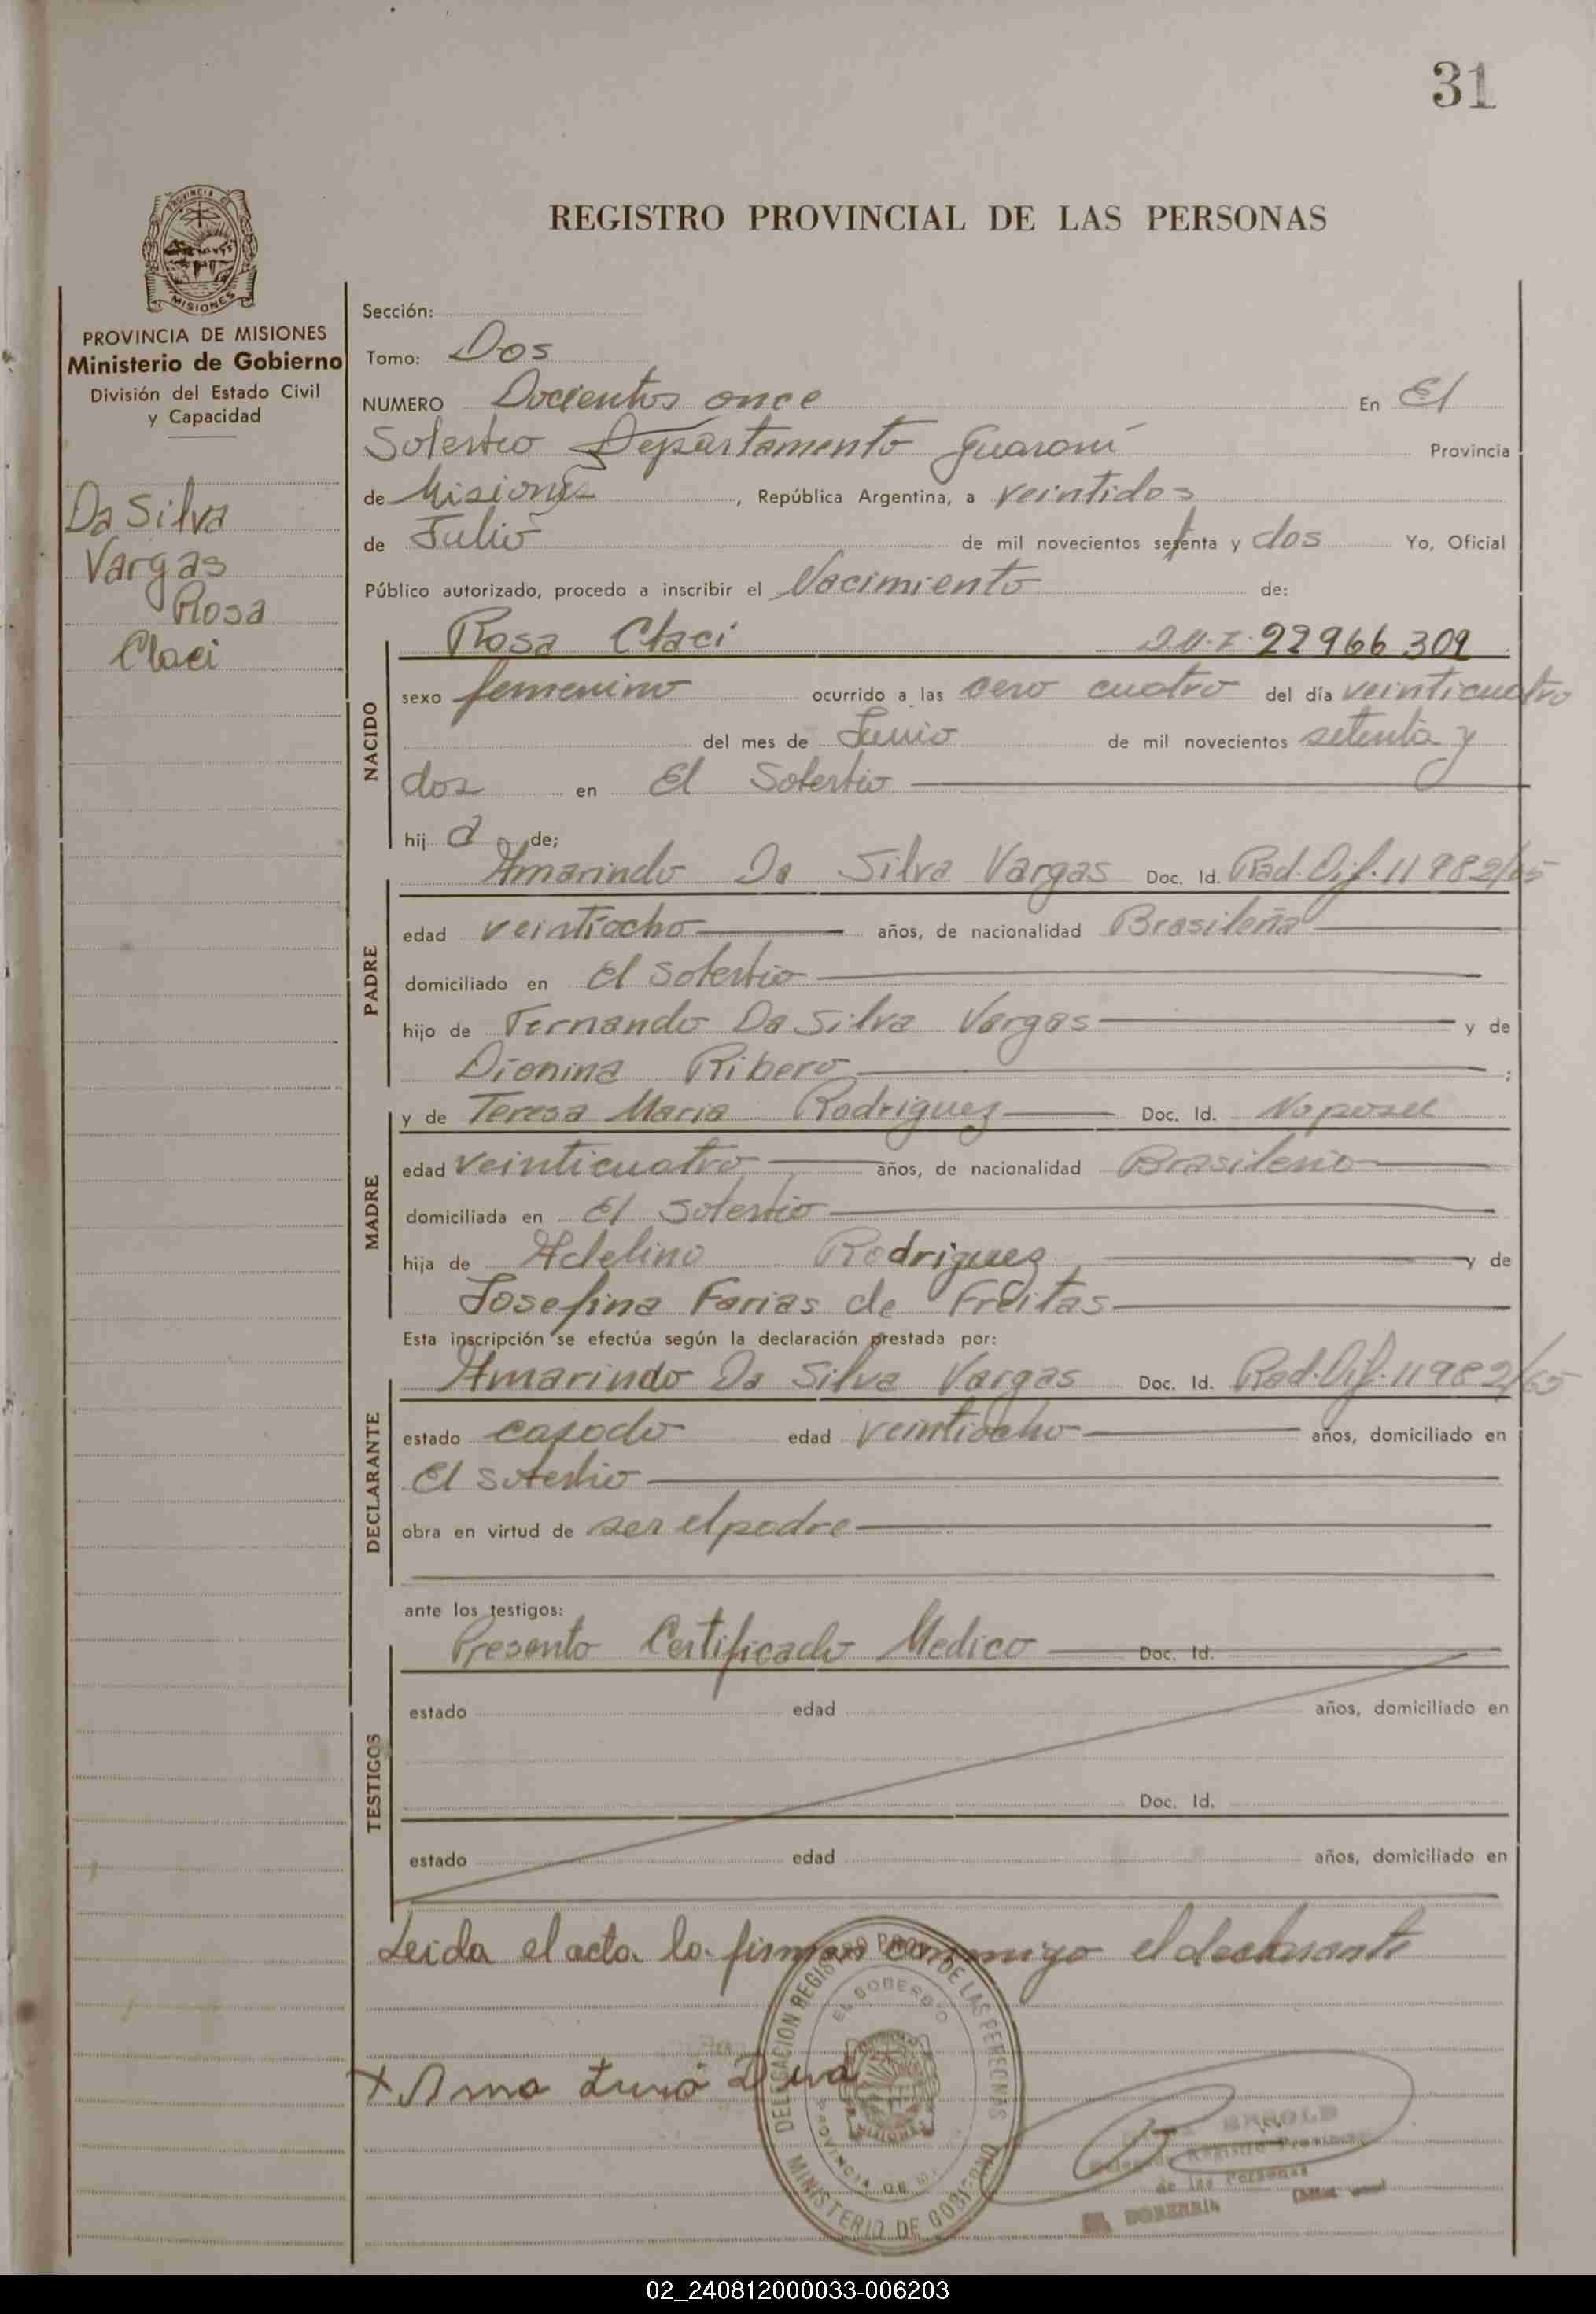 31
PROVINCIA DE
MISIONES
REGISTRO PROVINCIAL DE LAS PERSONAS
PROVINCIA DE MISIONES
Ministerio de Gobierno
División del Estado Civil
y Capacidad
Da Silva
Vargas
Rosa
Claci
Sección:
Tomo: Dos
NUMERO Docientos once En El
Soberbio Departamento Guaraní Provincia
de Misiones, República Argentina, a veintidos
de Julio de mil novecientos setenta y dos Yo, Oficial
Público autorizado, procedo a inscribir el Nacimiento de:
NACIDO
Rosa Claci D.N.I. 22966309
sexo femenino ocurrido a las cero cuatro del día veinticuatro
del mes de Junio de mil novecientos setenta y
dos en El Soberbio
hij a de;
PADRE
Amarindo Da Silva Vargas Doc. Id. Rad. Dif. 11982/65
edad veintiocho años, de nacionalidad Brasileña
domiciliado en El Soberbio
hijo de Fernando Da Silva Vargas y de
Dionina Ribero ;
MADRE
y de Teresa Maria Rodriguez Doc. Id. No posee
edad veinticuatro años, de nacionalidad Brasilena
domiciliada en El Soberbio
hija de Adelino Rodriguez y de
Josefina Farias de Freitas
Esta inscripción se efectúa según la declaración prestada por:
DECLARANTE
Amarindo Da Silva Vargas Doc. Id. Rad. Dif. 11982/65
estado casado edad veintiocho años, domiciliado en
El Soberbio
obra en virtud de ser el padre
ante los testigos:
TESTIGOS
Presento Certificado Medico Doc. Id.
estado edad años, domiciliado en
Doc. Id.
estado edad años, domiciliado en
Leida el acta la firman conmigo el declarante
DELEGACION REGISTRO PROV. DE LAS PERSONAS
EL SOBERBIO
PROVINCIA DE
MISIONES
MINISTERIO DE GOBIERNO
Registro Provincial
de las Personas
EL SOBERBIO
02_240812000033-006203